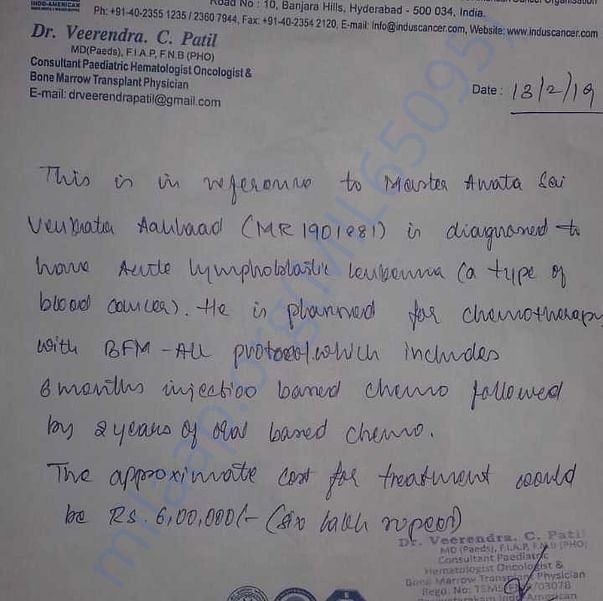 INDO-AMERICAN
Road No : 10, Banjara Hills, Hyderabad - 500 034, India.
Ph: +91-40-2355 1235 / 2360 7944, Fax: +91-40-2354 2120, E-mail: info@induscancer.com, Website: www.induscancer.com
Dr. Veerendra. C. Patil
MD(Paeds), F.I.A.P, F.N.B (PHO)
Consultant Paediatric Hematologist Oncologist &
Bone Marrow Transplant Physician
E-mail: drveerendrapatil@gmail.com
Date : 13/2/19
This is in reference to Master Anata Sai
Venkata (MR 1901881) is diagnosed to
have Acute lymphoblastic leukemia (a type of
blood cancer). He is planned for chemotherapy
with BFM-ALL protocol which includes
6 months injection based chemo followed
by 2 years of oral based chemo.
The approximate cost for treatment would
be RS. 6,00,000/- (six lakh rupees)
Dr. Veerendra. C. Patil
MD (Paeds), F.I.A.P, F.N.B (PHO)
Consultant Paediatric
Hematologist Oncologist &
Bone Marrow Transplant Physician
Regd. No: /03078
Indo American